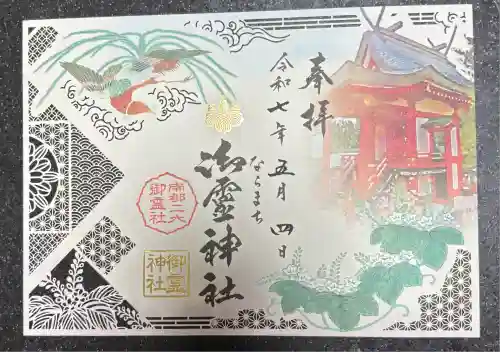 奉拝
令和七年五月四日
ならまち
御霊神社
南都二大
御霊社
御霊
神社